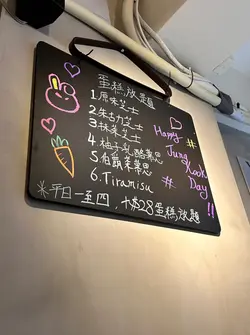 蛋糕放題
1.原味芝士
2.朱古力芝士
3.抹茶芝士
4.柚子乳酪慕思
5.伯爵茶慕思
6.Tiramisu
※平日一至四,+$28蛋糕放題
Happy #
Jung
Kook
# Day
!!